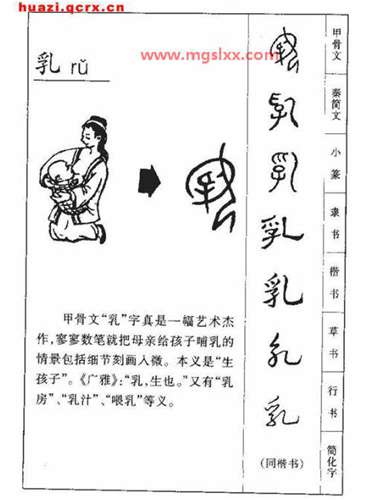 huazi.qcrx.cn
www.mgslxx.com
乳 rǔ
甲骨文“乳”字真是一幅艺术杰
作，寥寥数笔就把母亲给孩子哺乳的
情景包括细节刻画入微。本义是“生
孩子”。《广雅》：“乳，生也。”又有“乳
房”、“乳汁”、“喂乳”等义。
乳
乳
乳
乳
乳
乳
乳
(同楷书)
甲骨文
秦简文
小篆
隶书
楷书
草书
行书
简化字